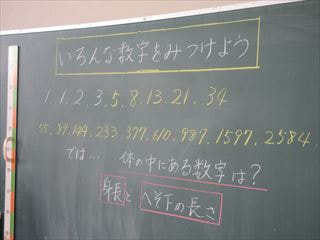 いろんな数字をみつけよう
1.1.2.3.5.8.13.21.34
55.89.144.233 377.610.987.1597.2584.
では… 体の中にある数字は?
身長とへそ下の長さ